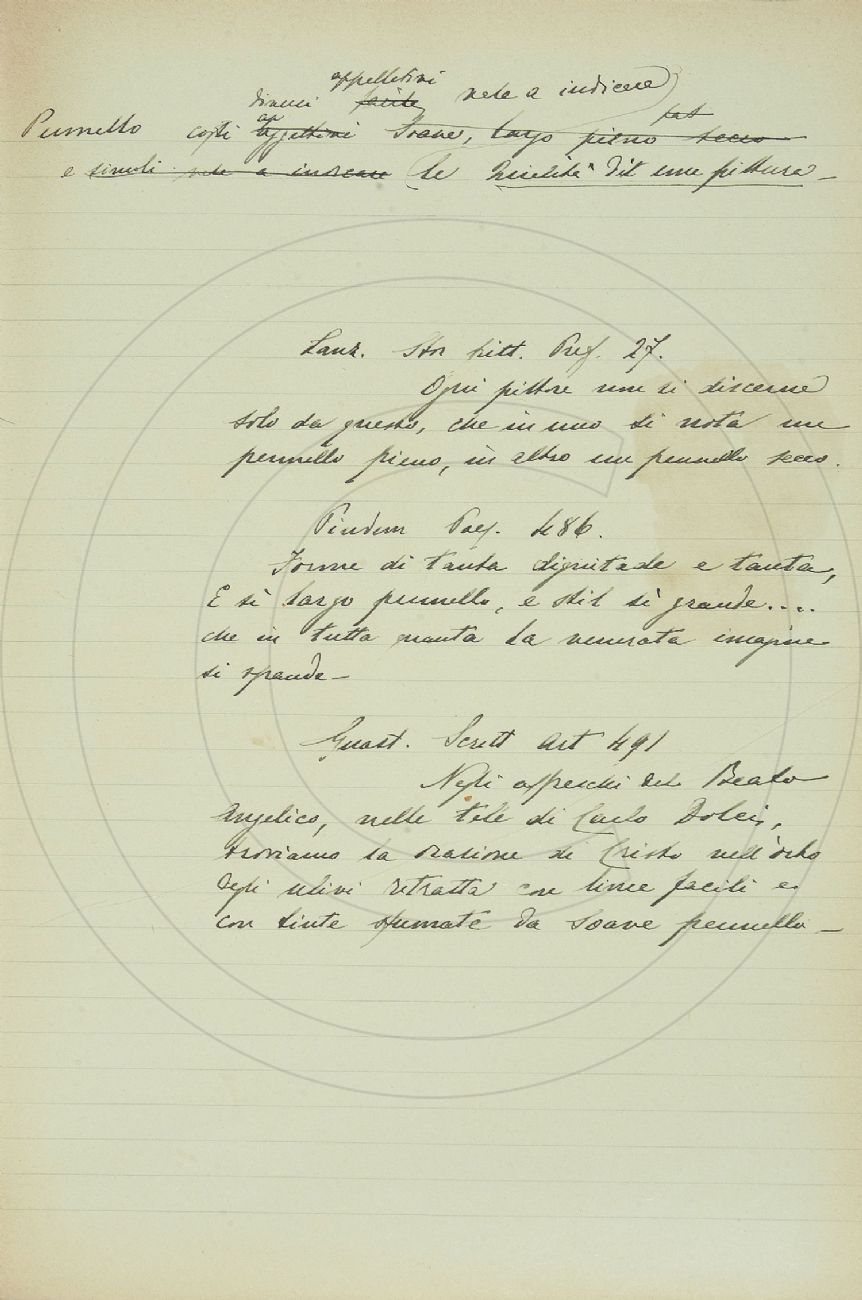 appellativi
diversi vale a indicare
Pennello cogli aggettivi soave, largo pieno secco
e simili vale a indicare le qualità di una pittura
Lanz. Stor pitt. Pref. 27.
Ogni pittore non si discerne
solo da questo, che in uno si nota un
pennello pieno, in altro un pennello secco.
Pindem Poes. 486.
Forme di tanta dignitade e tanta,
E sì largo pennello, e stil sì grande....
che in tutta quanta la venerata imagine
si spande
Guast. Scritt Art 491
Negli affreschi del Beato
Angelico, nelle tele di Carlo Dolci,
troviamo la orazione di Cristo nell'orto
degli ulivi ritratta con linee facili e
con tinte sfumate da soave pennello